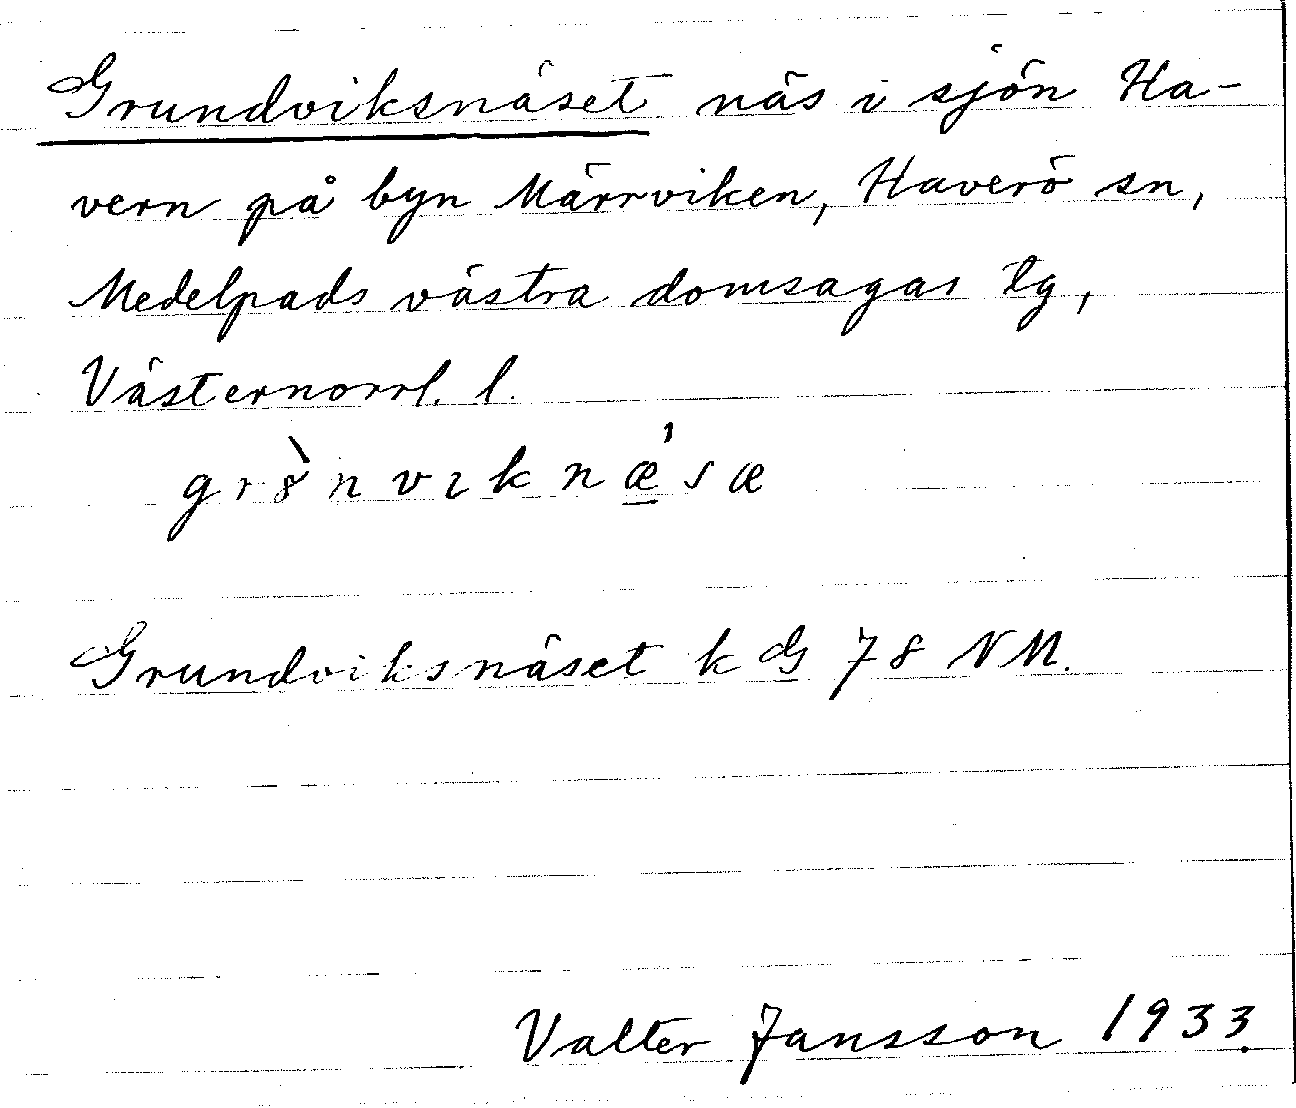 Grundviksnäset näs i sjön Ha-
vern på byn Märrviken, Haverö sn,
Medelpads västra domsagas tg,
Västernorrl. l.
gr8̀nvıknǽ̲sæ
Grundviksnäset k G 78 NM.
Valter Jansson 1933.